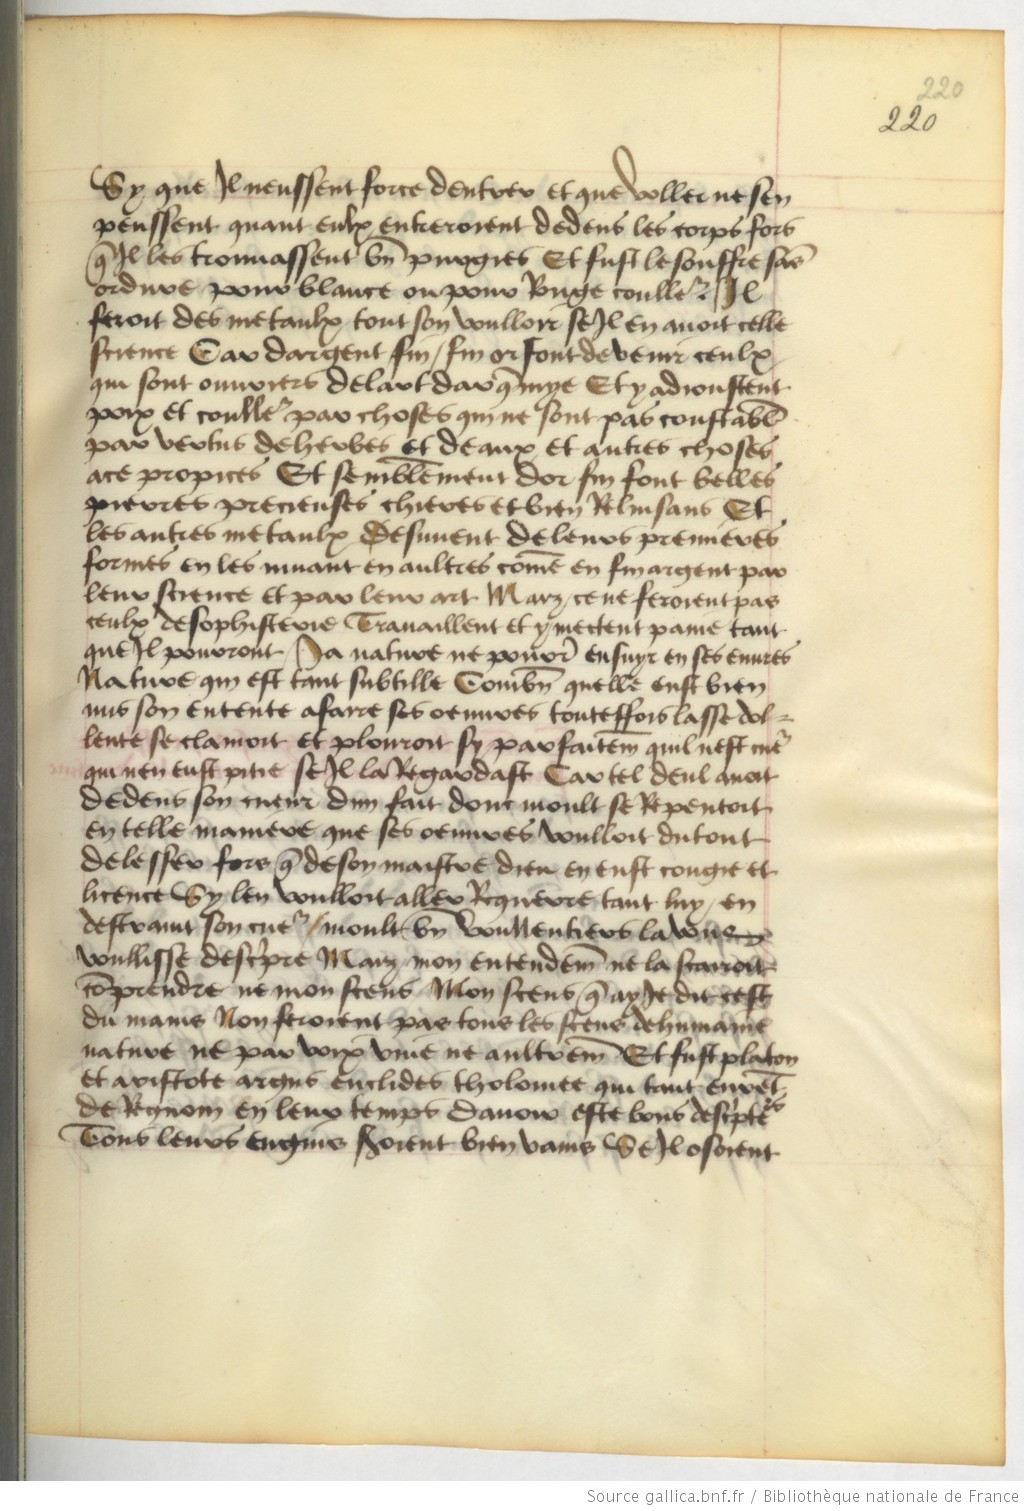 220
220
Sy que Il neussent force dentrer et que voller ne sen
peussent quant eulx entreroient dedens les corps fors
q̃ Il les trouuassent bn̄ purgies Et fust le souffre sãs
ordure pour blance ou pour Rouge coulleʳ Il
feroit des metaulx tout son voulloir se Il en auoit celle
science Car dargent fin / fin or font devenir ceulx
qui sont ouuriers de lart darq̃mye Et y adioustent
poix et coulleʳ par choses qui ne sont pas constabl̄
par vertus de herbes et deaux et autres choses
ace propices Et semblement dor fin font belles
pierres precienses chieres et bien Reluisans Et
les autres metaulx Desuuent de leurs premieres
formes en les muant en aultres com̄e en fin argent par
leur science et par leur art Marz / ce ne feroient pas
ceulx de sophisterie Trauaillent et y mectent paine tant
que Il pouront / Ja nature ne pourr̄ ensuyr en ses euures
Nature qui est tant subtille Combn̄ quelle eust bien
mis son entente a faire ses oeuures touteffois lasse dol=
lente se clamoit et plouroit sy parfaitem̄ quil nest cueʳ
qui nen eust pitie se Il la Regardast Car tel deul auoit
dedens son cueur dun fait dont moult se Repentoit
en telle maniere que ses oeuures voulloit du tout
delesser fors q̃ de son maistre dieu en eust congie et
licence Sy len voulloit aller Requerre tant luy / en
destraint son cueʳ / moult bn̄ voullentiers la vous
voullisse descp̃re Marz / mon entendem̄ ne la scauroit
cõprendre ne mon scens Mon scens q̃ ay Je dit cest
du mains Non feroient pas tous les scens de humaine
nature ne par voix viue ne aultrem̄ Et fust platon
et aristote argus euclides tholomee qui tant eurēt
de Regnom en leur temps dauoir este bons descp̃teʳs
Tous leurs engins seroient bien vains Se Il osoient
Source gallica.bnf.fr / Bibliothèque nationale de France